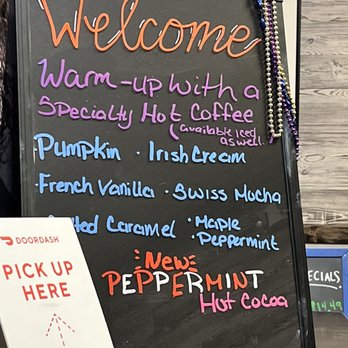 Welcome
Warm-up with a
Specialty Hot Coffee
(available iced
as well.
Pumpkin · Irish Cream
· French Vanilla · Swiss Mocha
Caramel · Maple
· Peppermint
New
PEPPERMINT
Hot Cocoa
DOORDASH
PICK UP
HERE
$14.49